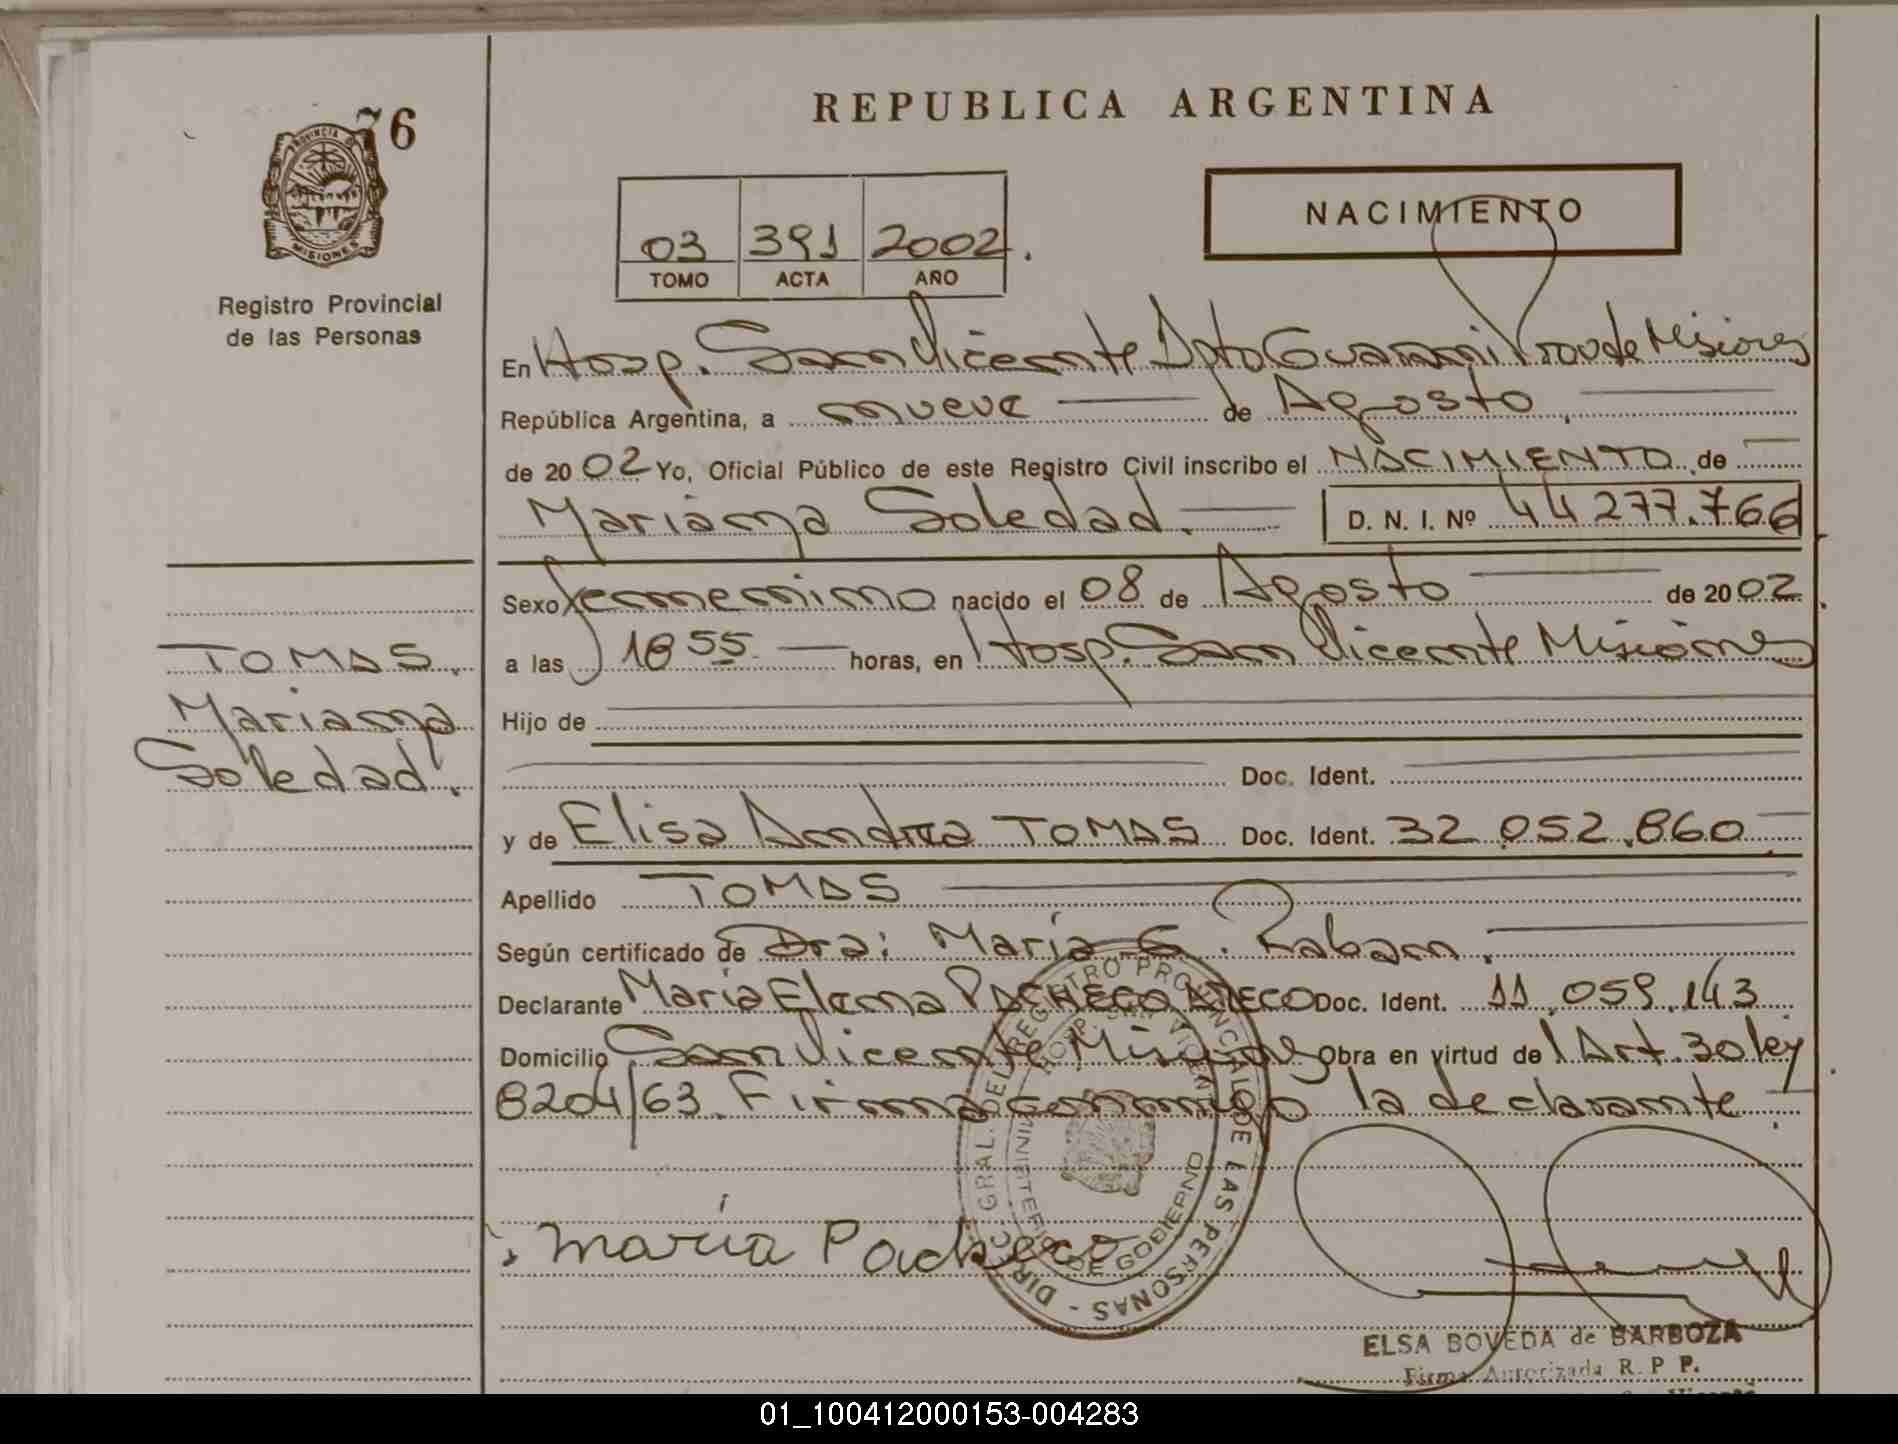 76
PROVINCIA
MISIONES
Registro Provincial
de las Personas
TOMAS.
Mariana
Soledad.
REPUBLICA ARGENTINA
03 391 2002.
TOMO ACTA AÑO
NACIMIENTO
En Hosp. San Vicente Dpto Guarani Prov de Misiones
República Argentina, a nueve de Agosto
de 20 02 Yo, Oficial Público de este Registro Civil inscribo el NACIMIENTO de
Mariana Soledad. D. N. I. Nº 44 277.766
Sexo femenino nacido el 08 de Agosto de 20 02.
a las 18 55 horas, en Hosp. San Vicente Misiones
Hijo de
Doc. Ident.
y de Elisa Andrea TOMAS Doc. Ident. 32.052.860
Apellido TOMAS
Según certificado de Dra: María E. Raban.
Declarante María Elena PACHECO Doc. Ident. 11.059.143
Domicilio San Vicente Misiones Obra en virtud del Art. 30 ley
8204/63. Firma conmigo la declarante.
María Pacheco
DIR. GRAL. DEL REGISTRO PROVINCIAL DE LAS PERSONAS -
MINISTERIO DE GOBIERNO
ELSA BOVEDA de BARBOZA
Firma Autorizada R. P. P.
01_100412000153-004283